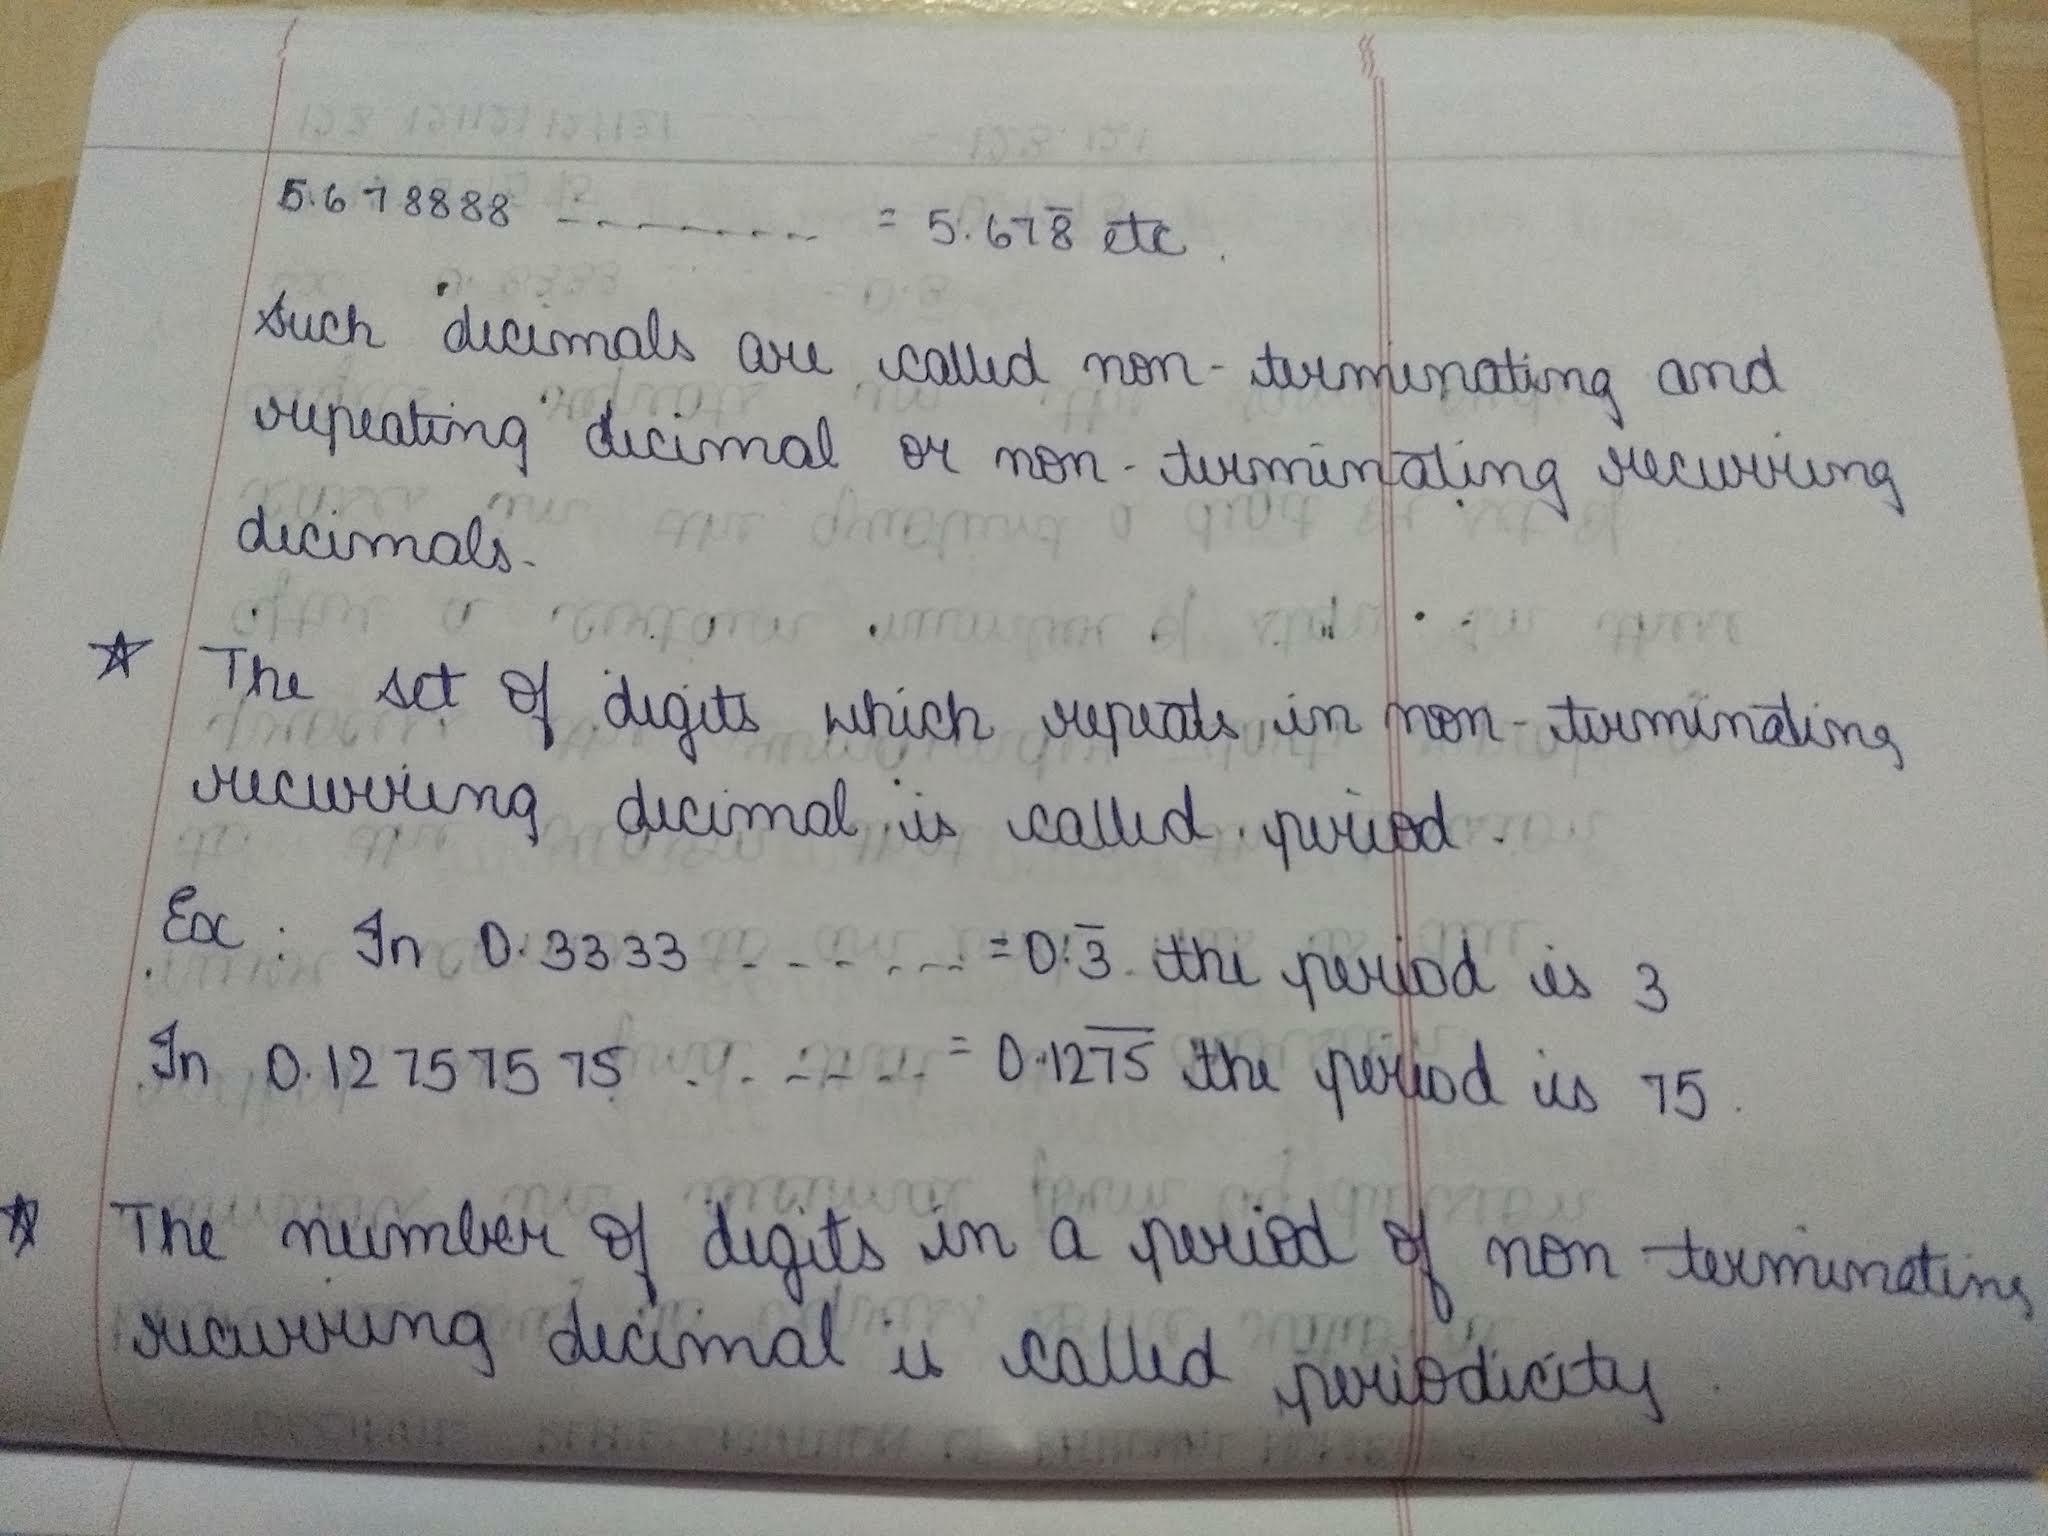 5.678888 - - - - - - - = 5.678̅ etc.
Such decimals are called non-terminating and
repeating decimal or non-terminating recurring
decimals.
☆ The set of digits which repeats in non-terminating
recurring decimal is called period.
Ex : In 0.3333 - - - - - - = 0.3̅ the period is 3
In 0.12757575 - - - - - - = 0.127̅5̅ the period is 75.
☆ The number of digits in a period of non terminating
recurring decimal is called periodicity.